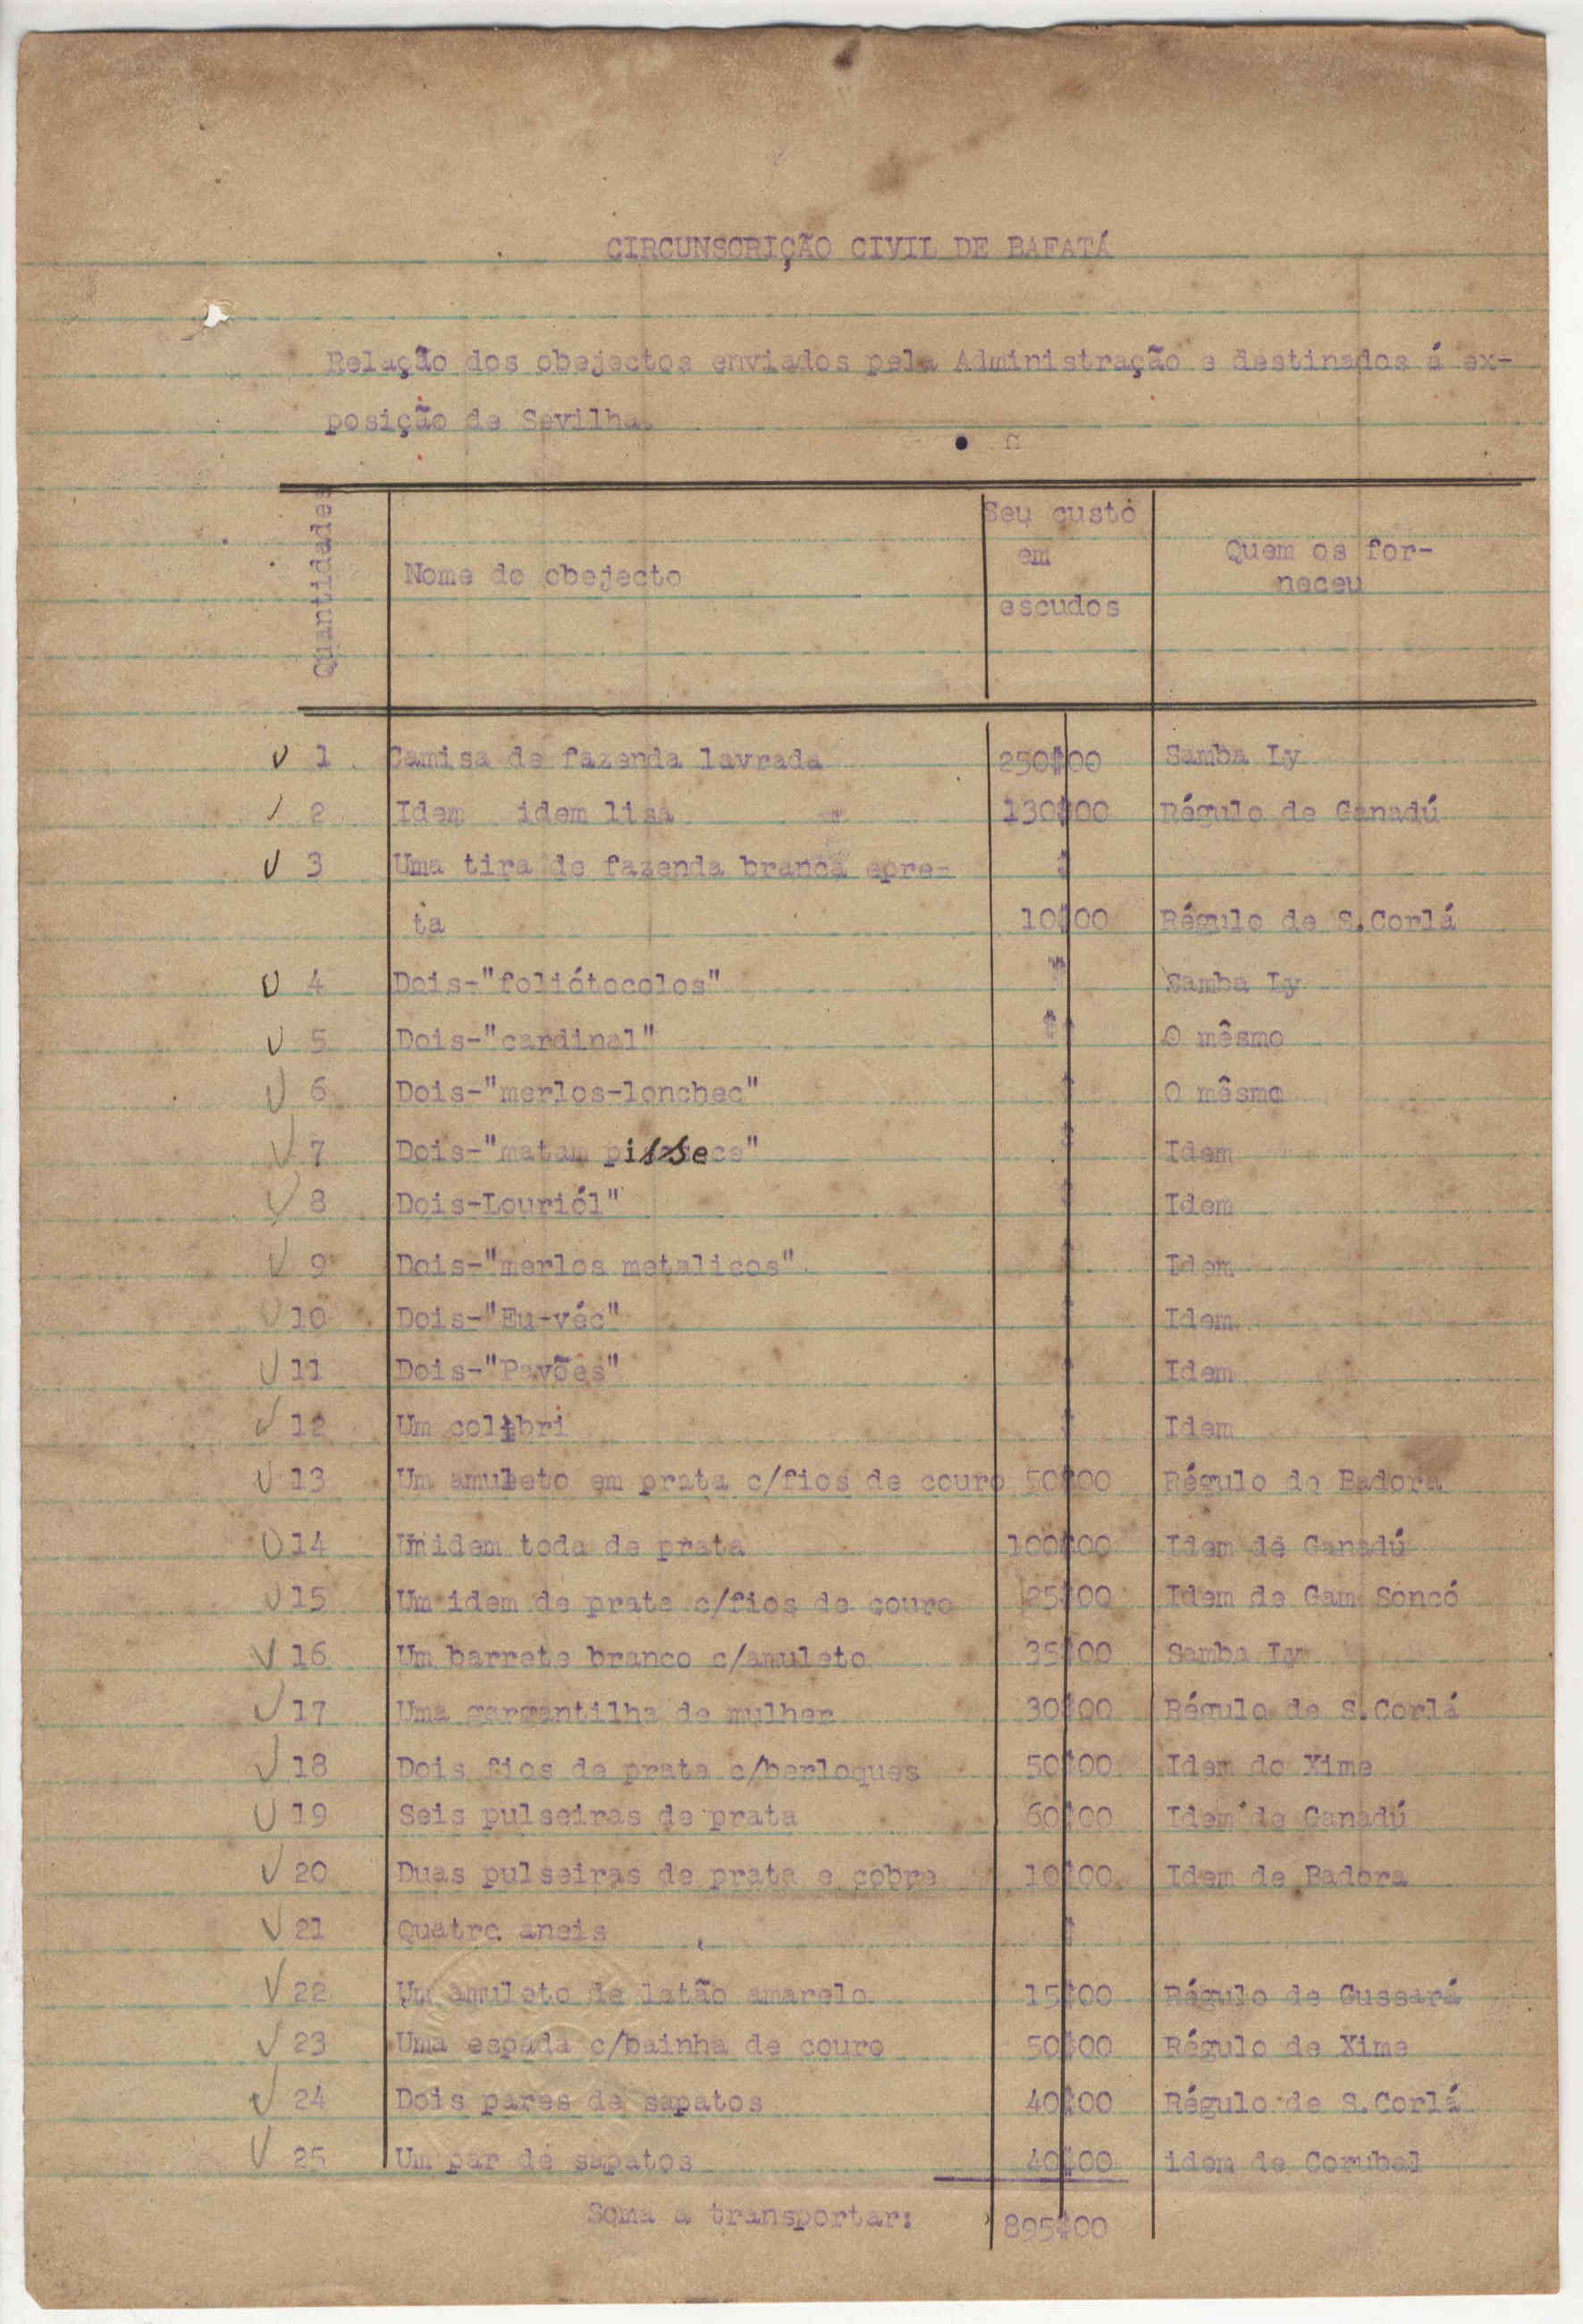 CIRCUNSCRIÇÃO CIVIL DE BAFATÁ
Relação dos obejectos enviados pela Administração e destinados á ex-
posição de Sevilha.
Quantidades
Nome do obejecto
Seu custo
em
escudos
Quem os for-
neceu
1 Camisa de fazenda lavrada 250$00 Samba Ly
2 Idem idem lisa 130$00 Régulo de Ganadú
3 Uma tira de fazenda branca epre- $
ta 10$00 Régulo de S.Corlá
4 Dois-"foliótocolos" Samba Ly
5 Dois-"cardinal" $ O mêsmo
6 Dois-"merlos-lonchec" $ O mêsmo
7 Dois-"matam Idem
8 Dois-Louriól" $ Idem
9 Dois-"merlos metalicos" $ Idem
10 Dois-"Eu-véc" $ Idem
11 Dois-"Pavões" $ Idem
12 Um colibri $ Idem
13 Um amuleto em prata c/fios de couro 50$00 Régulo de Badora
14 Umidem toda de prata 100$00 Idem de Ganadú
15 Um idem de prata c/fios de couro 25$00 Idem de Gam Soncó
16 Um barrete branco c/amuleto 35$00 Samba Ly
17 Uma gargantilha de mulher 30$00 Régulo de S.Corlá
18 Dois fios de prata c/berloques 50$00 Idem do Xime
19 Seis pulseiras de prata 60$00 Idem de Ganadú
20 Duas pulseiras de prata e cobre 10$00 Idem de Badora
21 Quatro aneis $
22 Um amuleto de latão amarelo 15$00 Régulo de Cussará
23 Uma espada c/bainha de couro 50$00 Régulo de Xime
24 Dois pares de sapatos 40$00 Régulo de S.Corlá
25 Um par de sapatos 40$00 idem de Corubal
Soma a transportar: 895$00